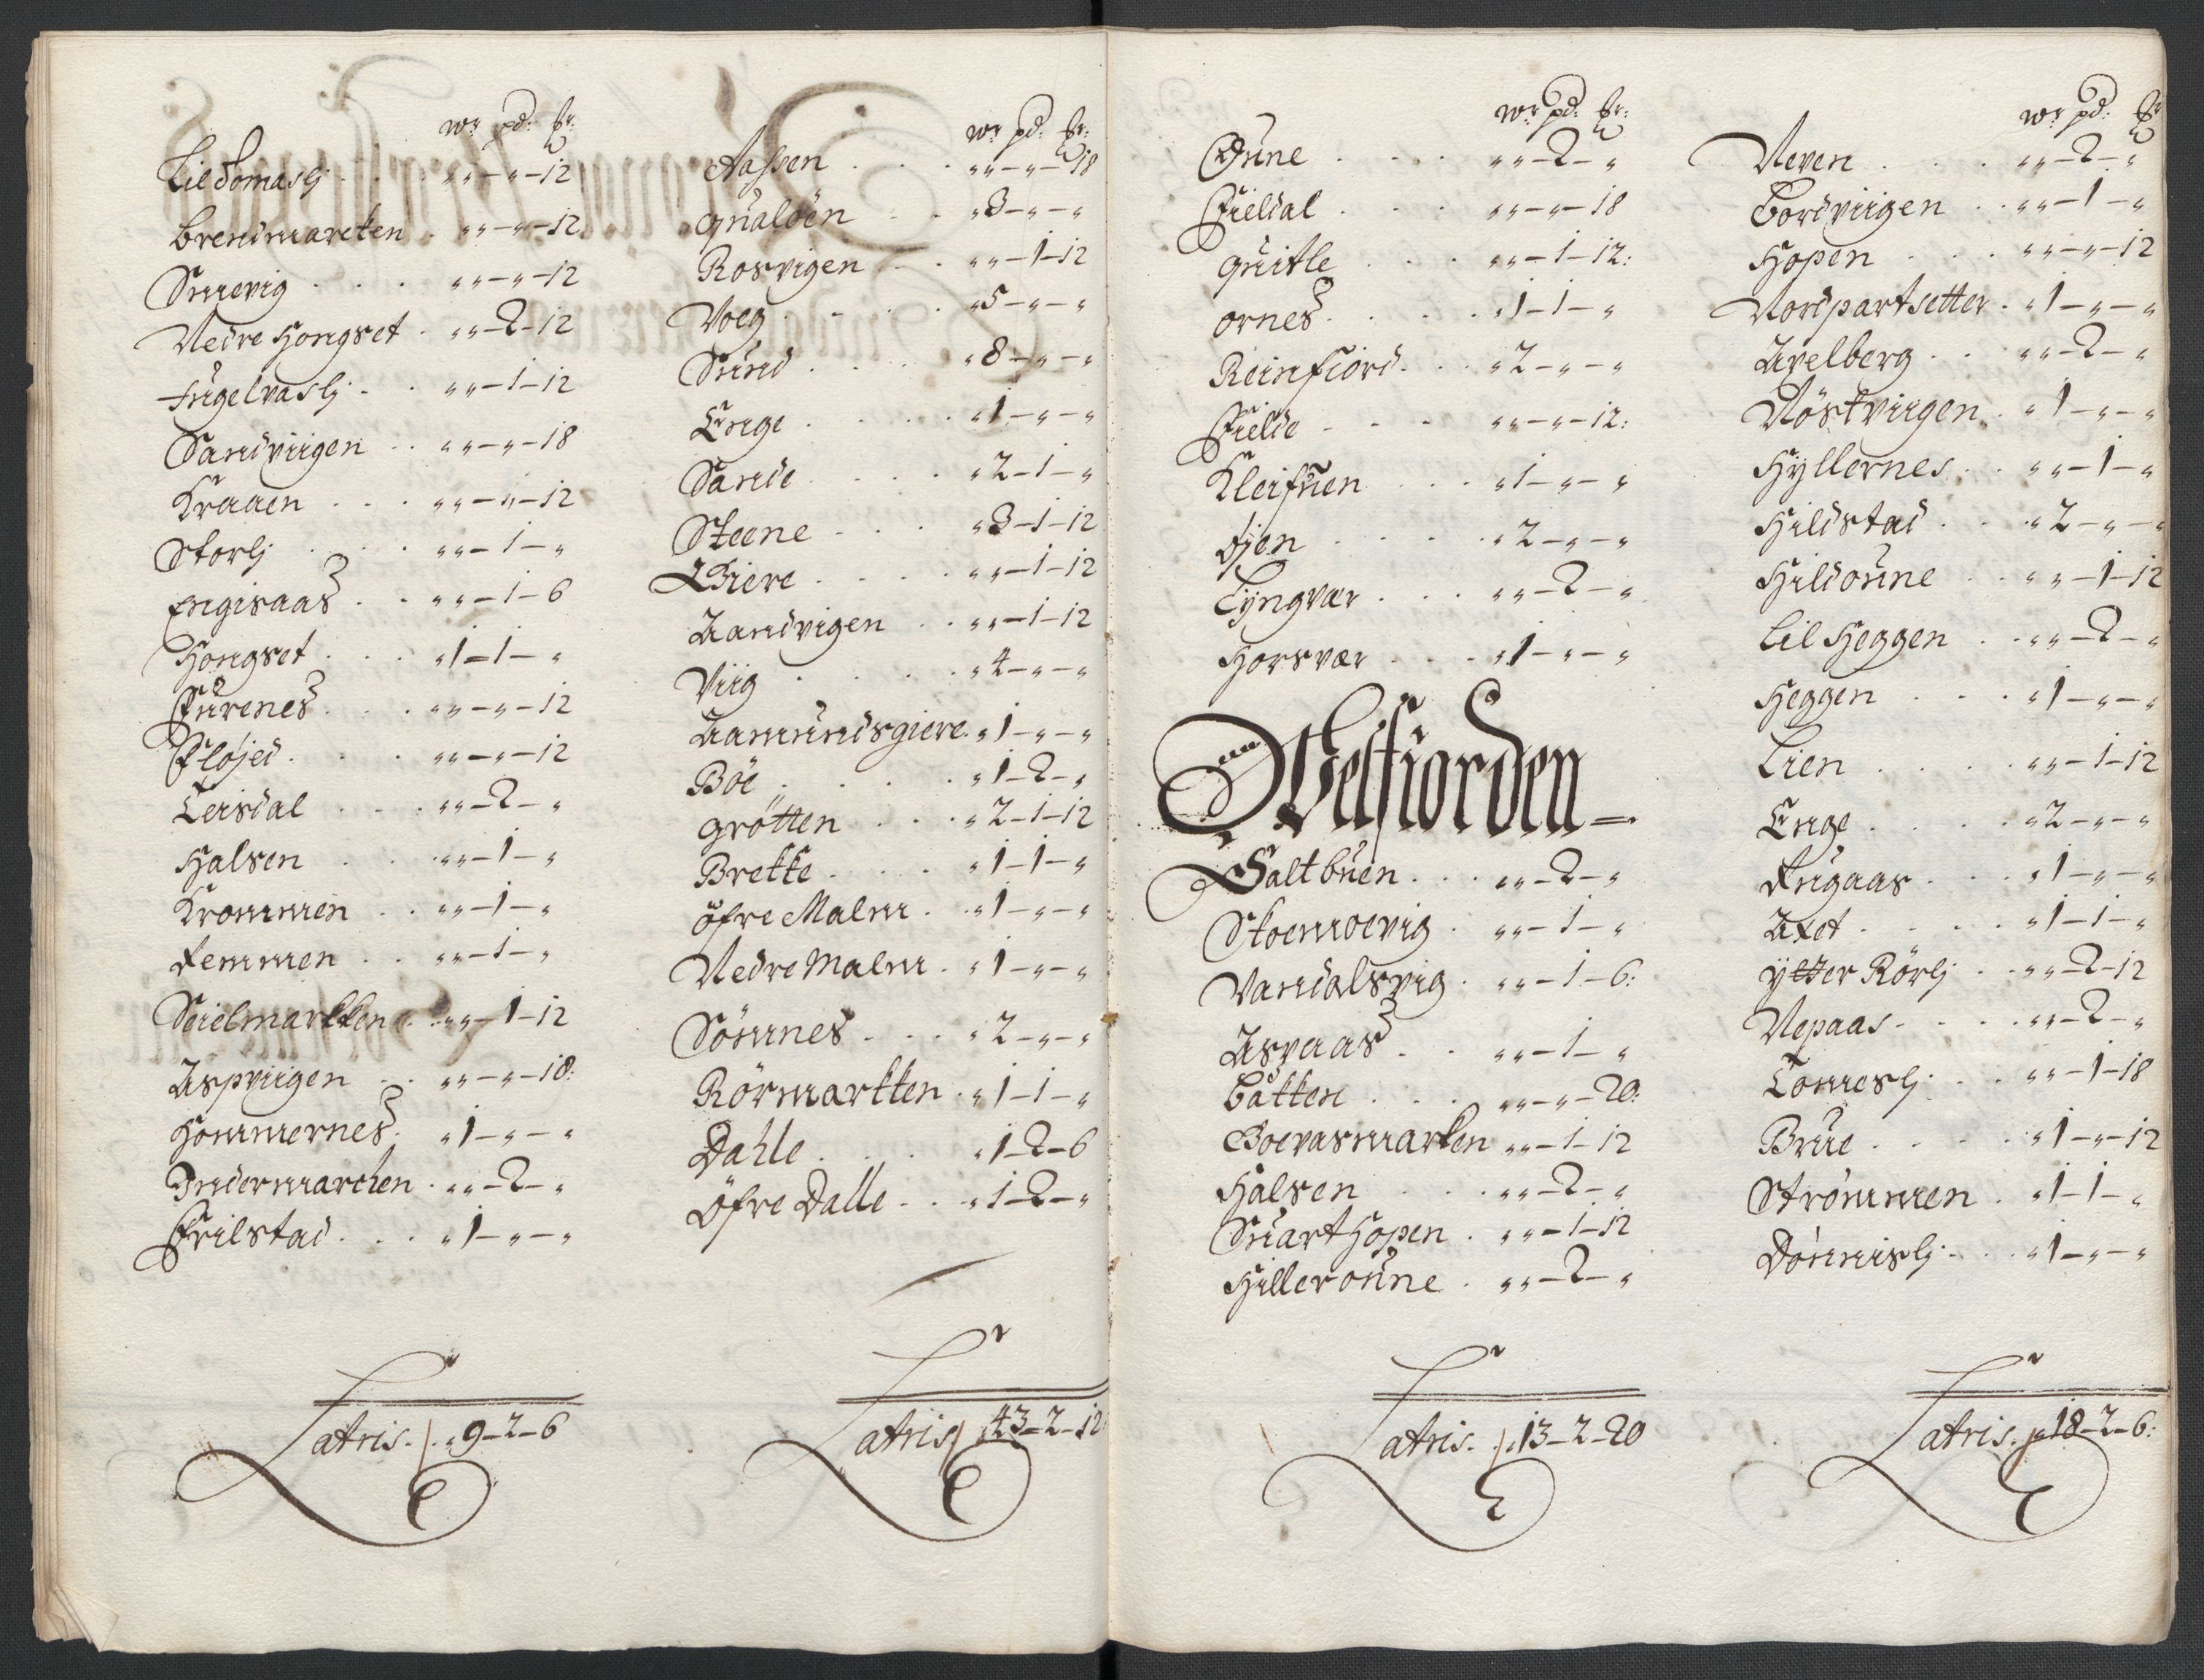 wr pd: br:
Lil Tomaslj . . . „„-„-12
Brendmarcken . „„-„-12
Snievig . . . „„-„-12
Nedre Hongset . „„-2-12
Fugelvaslj . . „„-1-12
Sandviigen . . „„-„-18
Kraaen . . . „„-„-12
Storlj . . . „„-1-„
Engisaas . . „„-1-6
Hongset . . . „1-1-„
Furenes . . . „„-„-12
Fløjed . . . „„-„-12
Teisdal . . . „„-2-„
Halsen . . . „„-1-„
Krommen . . „„-1-„
Femmen . . „„-1-„
Seielmarkken . „„-1-12
Aspviigen . . „„-„-18:
Hommernes . „1-„-„
Indermarchen . „„-2-„
Frilstad . . . „1-„-„
Latris . „9-2-6
wr pd: br:
Aaspen . . . „„-„-18
Qualøen . . „3-„-„
Rosvigen . . „„-1-12
Voeg . . . . „5-„-„
Sund . . . . „8-„-„
Enge . . . . „1-„-„
Sande . . . . „2-1-„
Steene . . . „3-1-12
Giere . . . . „„-1-12
Aandvigen . . „„-1-12
Viig . . . . „4-„-„
Aamundsgiere . „1-„-„
Böe . . . . „1-2-„
Grötten . . . „2-1-12
Brekke . . . . „1-1-„
Öfre Malm . „1-„-„
Nedre Malm . „1-„-„
Sömnes . . . „2-„-„
Rörmarkken . „1-1-„
Dahle . . . „1-2-6
Öfre Dalle . . „1-2-„
Latris „43-2-12
wr pd: br:
Oune . . . „„-2-„
Fieldal . . . „„-„-18
Quitle . . . „„-1-12:
Ornes . . . . „1-1-„
Reinfiord . . „2-„-„
Fielde . . . „„-„-12:
Kleifuen . . . „1-„-„
Öjen . . . . „2-„-„
Lyngvær . . . „„-2-„
Horsvær . . . „1-„-„
Velfiorden
Saltbuen . . . „„-2-„
Stoemoevig . „„-1-„
Vandalsvig . „„-1-6:
Asvaas . . „„-1-„
Bakken . . . „„-„-20:
Boevasmarken „„-1-12
Halsen . . . „„-2-„
Suarthopen . „„-1-12
Hilleroune . „„-2-„
Latris . „13-2-20
wr pd: br
Neven . . . „„-2-„
Bordviigen . . „„-1-„
Hopen . . . „„-„-12
Nordpartsetter . „1-„-„
Avelberg . . „„-2-„
Nöstviigen . „1-„-„
Hyllernes . . „„-1-„
Hildstad . . . „2-„-„
Hildoune . . „„-1-12
Lil Heggen . . „„-2-„
Heggen . . . „1-„-„
Lien . . . . „„-1-12
Enge . . . . „2-„-„
Fugaas . . . „1-„-„
Axet . . . . „1-1-„
Ytter Rörlj . . „„-2-12
Nepaas . . . „„-2-„
Tomeslj . . . „„-1-18
Brue . . . . „1-„-12
Strömmen . „1-1-„
Dömmislj . . „1-„-„
Latris . „18-2-6: